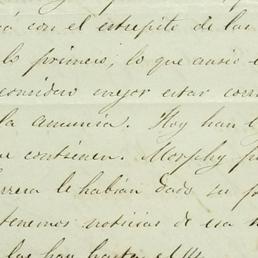 rá con el estrépito de las
lo primero, lo que ansio
considero mejor estar
la anuncia. Hoy han
contienen. Morphy
le habian dado su
tenemos noticias de esa
las han hasta el